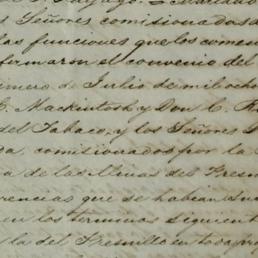 Señores comisionados
las funciones que los comen
firmaron el convenio del
imero de Julio de mil ocho
C. Mackintosh y Don C. R
del Tabaco, y los Señores
ga, comisionados por la
a de las Minas del Fresn
rencias que se habian su
en los terminos siguient
la del Fresnillo en toda pro